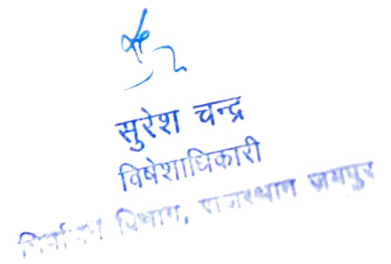 सुरेश चन्द्र
विषेशाधिकारी
निर्वाचन विभाग, राजस्थान जयपुर